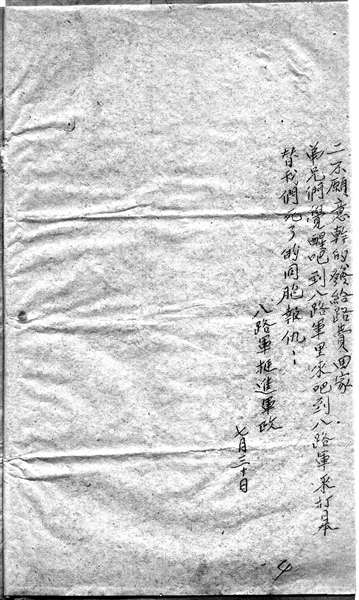 二不願意幹的發給路費回家.
弟兄們覺醒吧到八路軍里來吧到八路軍來打日本
替我們死了的同胞報仇:
八路軍挺進軍政
七月三十日
4